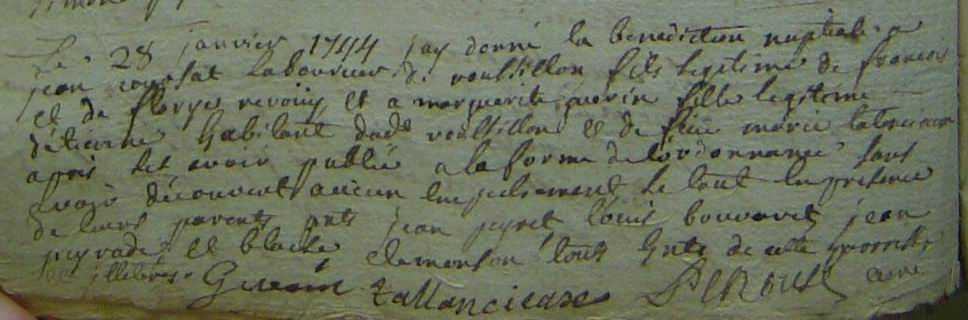 Le 28 janvier 1744 jay donné la benediction nuptiale a
jean laboureur de roussillon fils legitime de francois
et de et a marguerite guerin fille legitime
d'etienne habitant dud roussillon et de feüe marie
apres les avoir publié a la forme de l'ordonnance sans
avoir découvert aucun empechement le tout en presence
de leurs parents pnts jean peyret loüis bouvaret jean
peyrade et blaise clemenson touts hnts de cette parroisse
et illiteres Guerin tallancieux curé